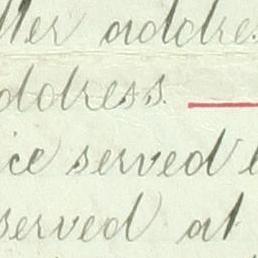 ller addre
ddress.
ice served
served at